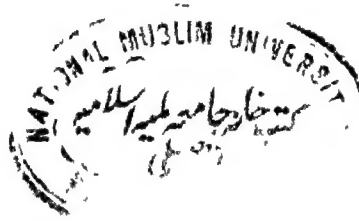 NATIONAL MUSLIM UNIVERSITY
کتب خانہ جامعہ ملیہ اسلامیہ